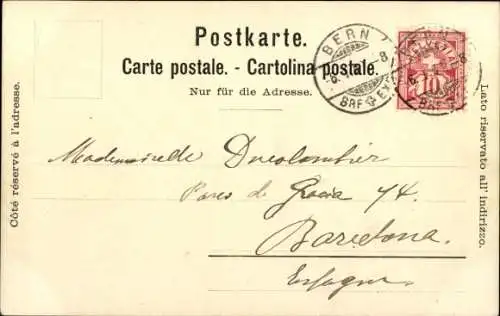 Postkarte.
Carte postale. - Cartolina postale.
Nur für die Adresse.
Côté réservé à l'adresse.
Lato riservato all' indirizzo.
BERN
HELVETIA
10
Mademoiselle Ducolombier
Paseo de Gracia 74.
Barcelona.
Espagne